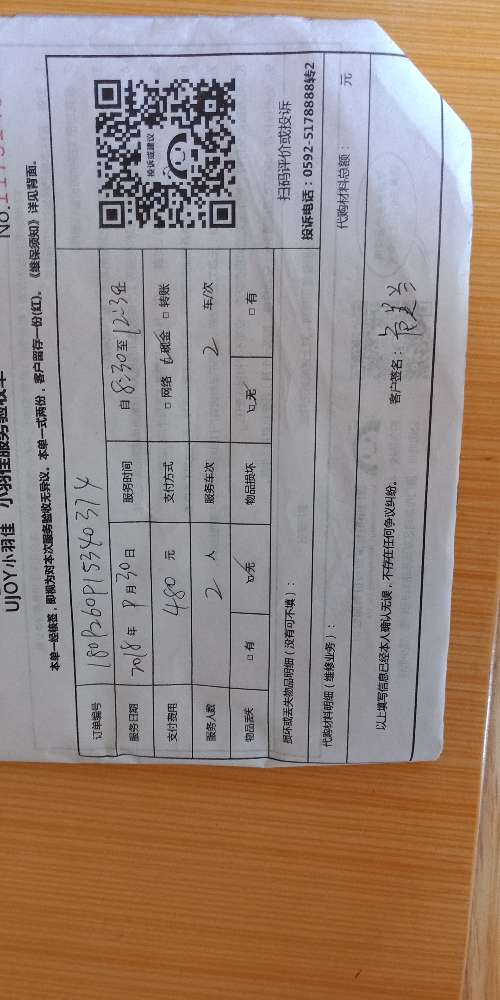 No.
UJOY小羽佳 小羽佳服务验收单
本单一经核签,即视为对本次服务验收无异议。本单一式两份,客户留存一份(红)。《维保须知》详见背面。
订单编号
服务日期 2018年 9月30日 服务时间 自 8:30至12:30
支付费用 480 元 支付方式 □ 网络 ☑ 现金 □ 转账
服务人数 2 人 服务车次 2 车/次
物品丢失 □ 有 ☑ 无 物品损坏 ☑ 无 □ 有
投诉或建议
扫码评价或投诉
投诉电话:0592-5178888转2
损坏或丢失物品明细(没有可不填):
代购材料明细(维修业务): 代购材料总额: 元
以上填写信息已经本人确认无误,不存在任何争议纠纷。 客户签名: